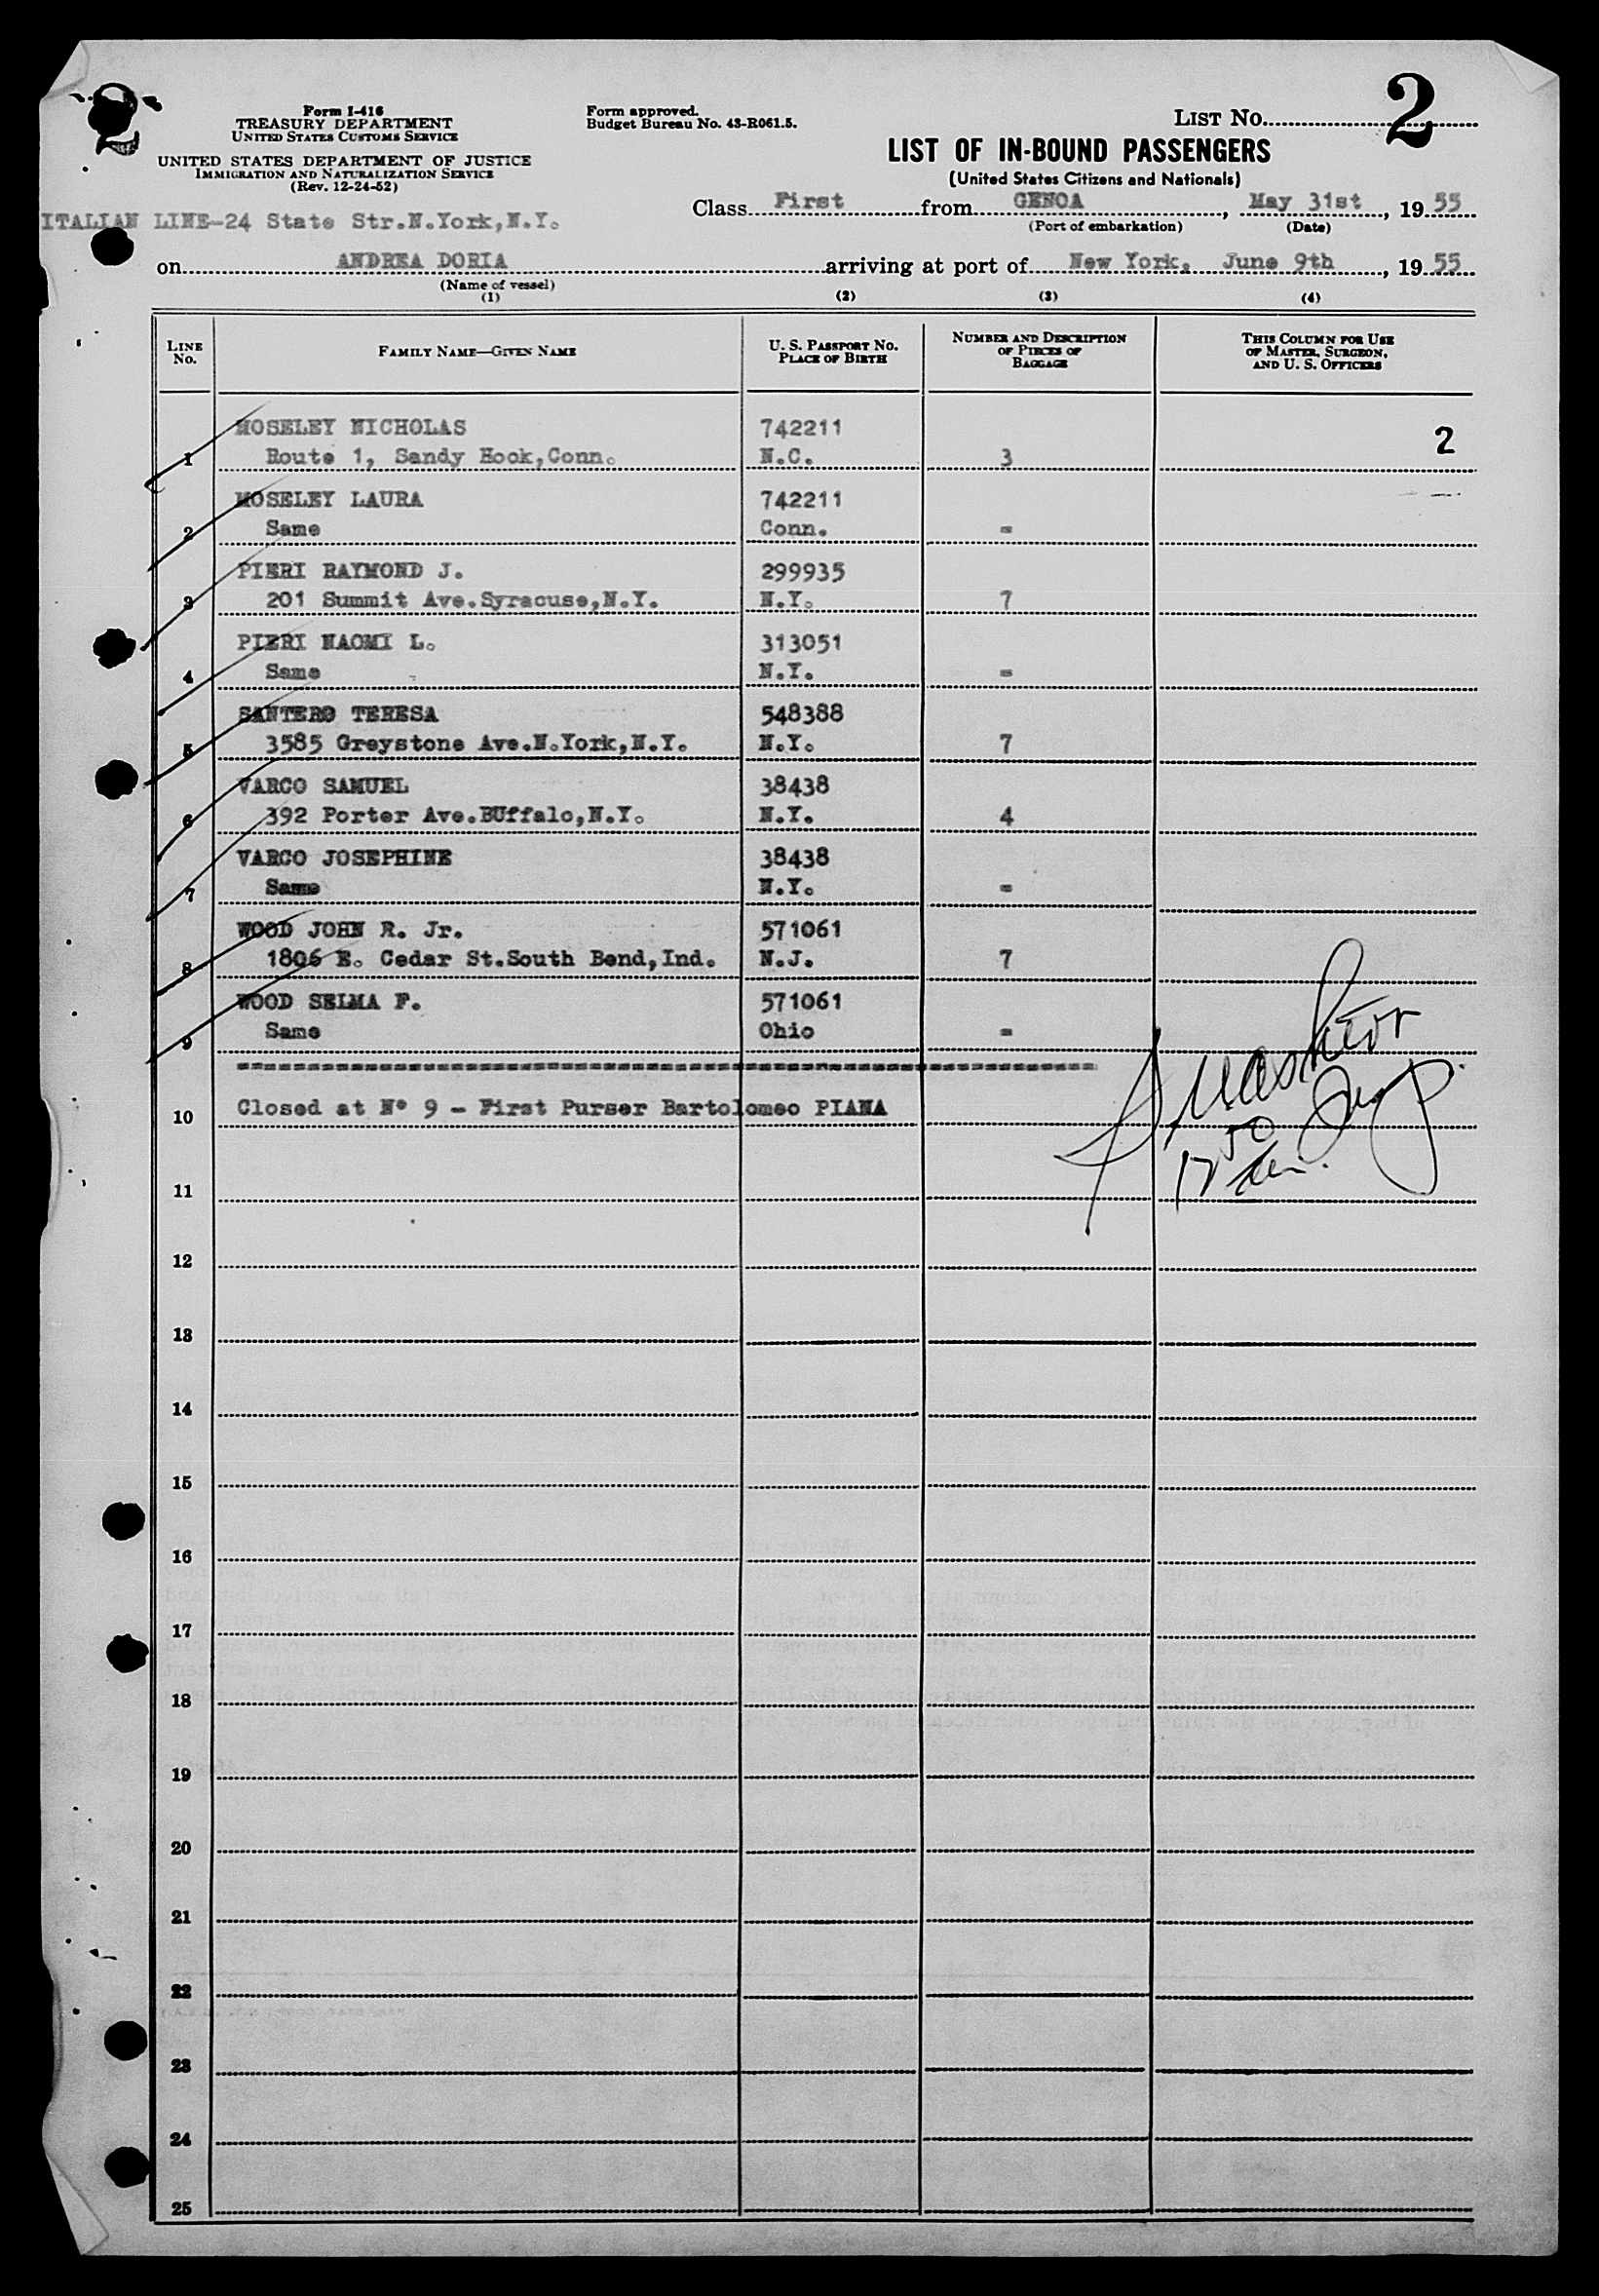 2
Form I-416
TREASURY DEPARTMENT
UNITED STATES CUSTOMS SERVICE
UNITED STATES DEPARTMENT OF JUSTICE
IMMIGRATION AND NATURALIZATION SERVICE
(Rev. 12-24-52)
Form approved.
Budget Bureau No. 43-R061.5.
LIST No. 2
LIST OF IN-BOUND PASSENGERS
(United States Citizens and Nationals)
ITALIAN LINE-24 State Str.N.York,N.Y.
Class First from GENOA, May 31st, 19 55
(Port of embarkation) (Date)
on ANDREA DORIA arriving at port of New York, June 9th, 19 55
(Name of vessel)
(1) (2) (3) (4)
LINE No. FAMILY NAME—GIVEN NAME U. S. PASSPORT No. PLACE OF BIRTH NUMBER AND DESCRIPTION OF PIECES OF BAGGAGE THIS COLUMN FOR USE OF MASTER, SURGEON, AND U. S. OFFICERS
MOSELEY NICHOLAS 742211 2
1 Route 1, Sandy Hook,Conn. N.C. 3
MOSELEY LAURA 742211
2 Same Conn. =
PIERI RAYMOND J. 299935
3 201 Summit Ave.Syracuse,N.Y. N.Y. 7
PIERI NAOMI L. 313051
4 Same N.Y. =
SANTERO TERESA 548388
5 3585 Greystone Ave.N.York,N.Y. N.Y. 7
VARCO SAMUEL 38438
6 392 Porter Ave.BUffalo,N.Y. N.Y. 4
VARCO JOSEPHINE 38438
7 Same N.Y. =
WOOD JOHN R. Jr. 571061
8 1806 E. Cedar St.South Bend,Ind. N.J. 7
WOOD SELMA F. 571061
9 Same Ohio =
10 Closed at N° 9 - First Purser Bartolomeo PIANA
11
12
13
14
15
16
17
18
19
20
21
22
23
24
25